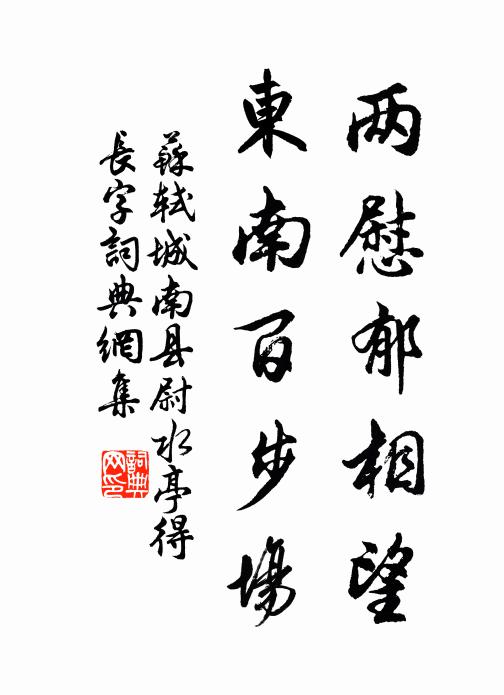 两慰郁相望
東南百步場
蘇軾城南县尉水亭得
長字詞典網集
詞典
网印